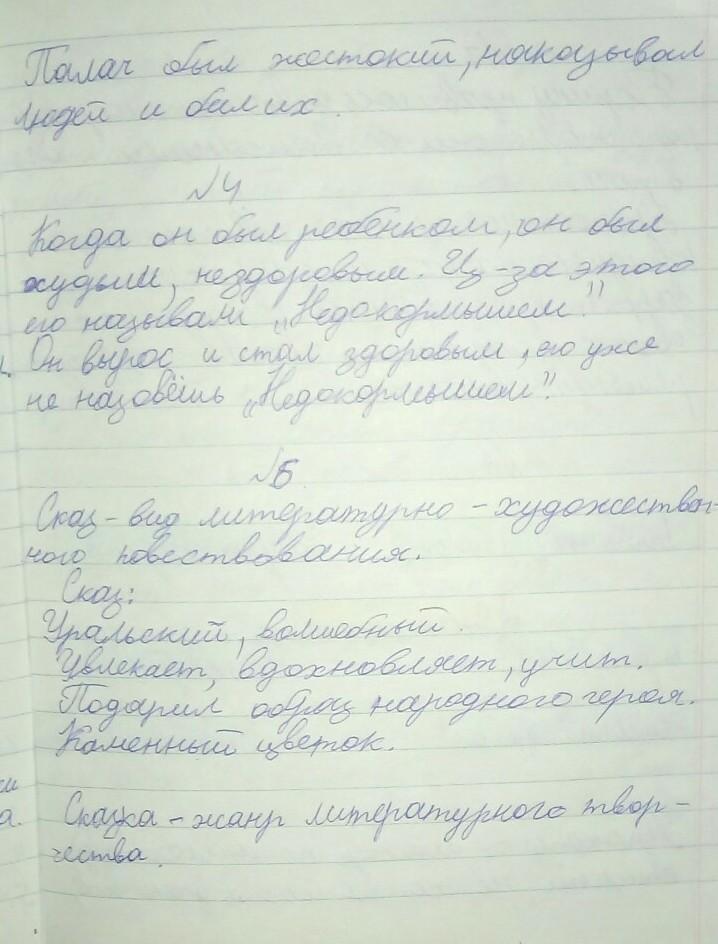 Палач был жестокий, наказывал
людей и бил их.
№4
Когда он был ребёнком, он был
худым, нездоровым. Из-за этого
его называли „Недокормышем".
Он вырос и стал здоровым, его уже
не назовёшь „Недокормышем".
№5
Сказ - вид литературно - художествен-
ного повествования.
Сказ:
Уральский, волшебный.
Увлекает, вдохновляет, учит.
Подарил образ народного героя.
Каменный цветок.
Сказка - жанр литературного твор-
чества.